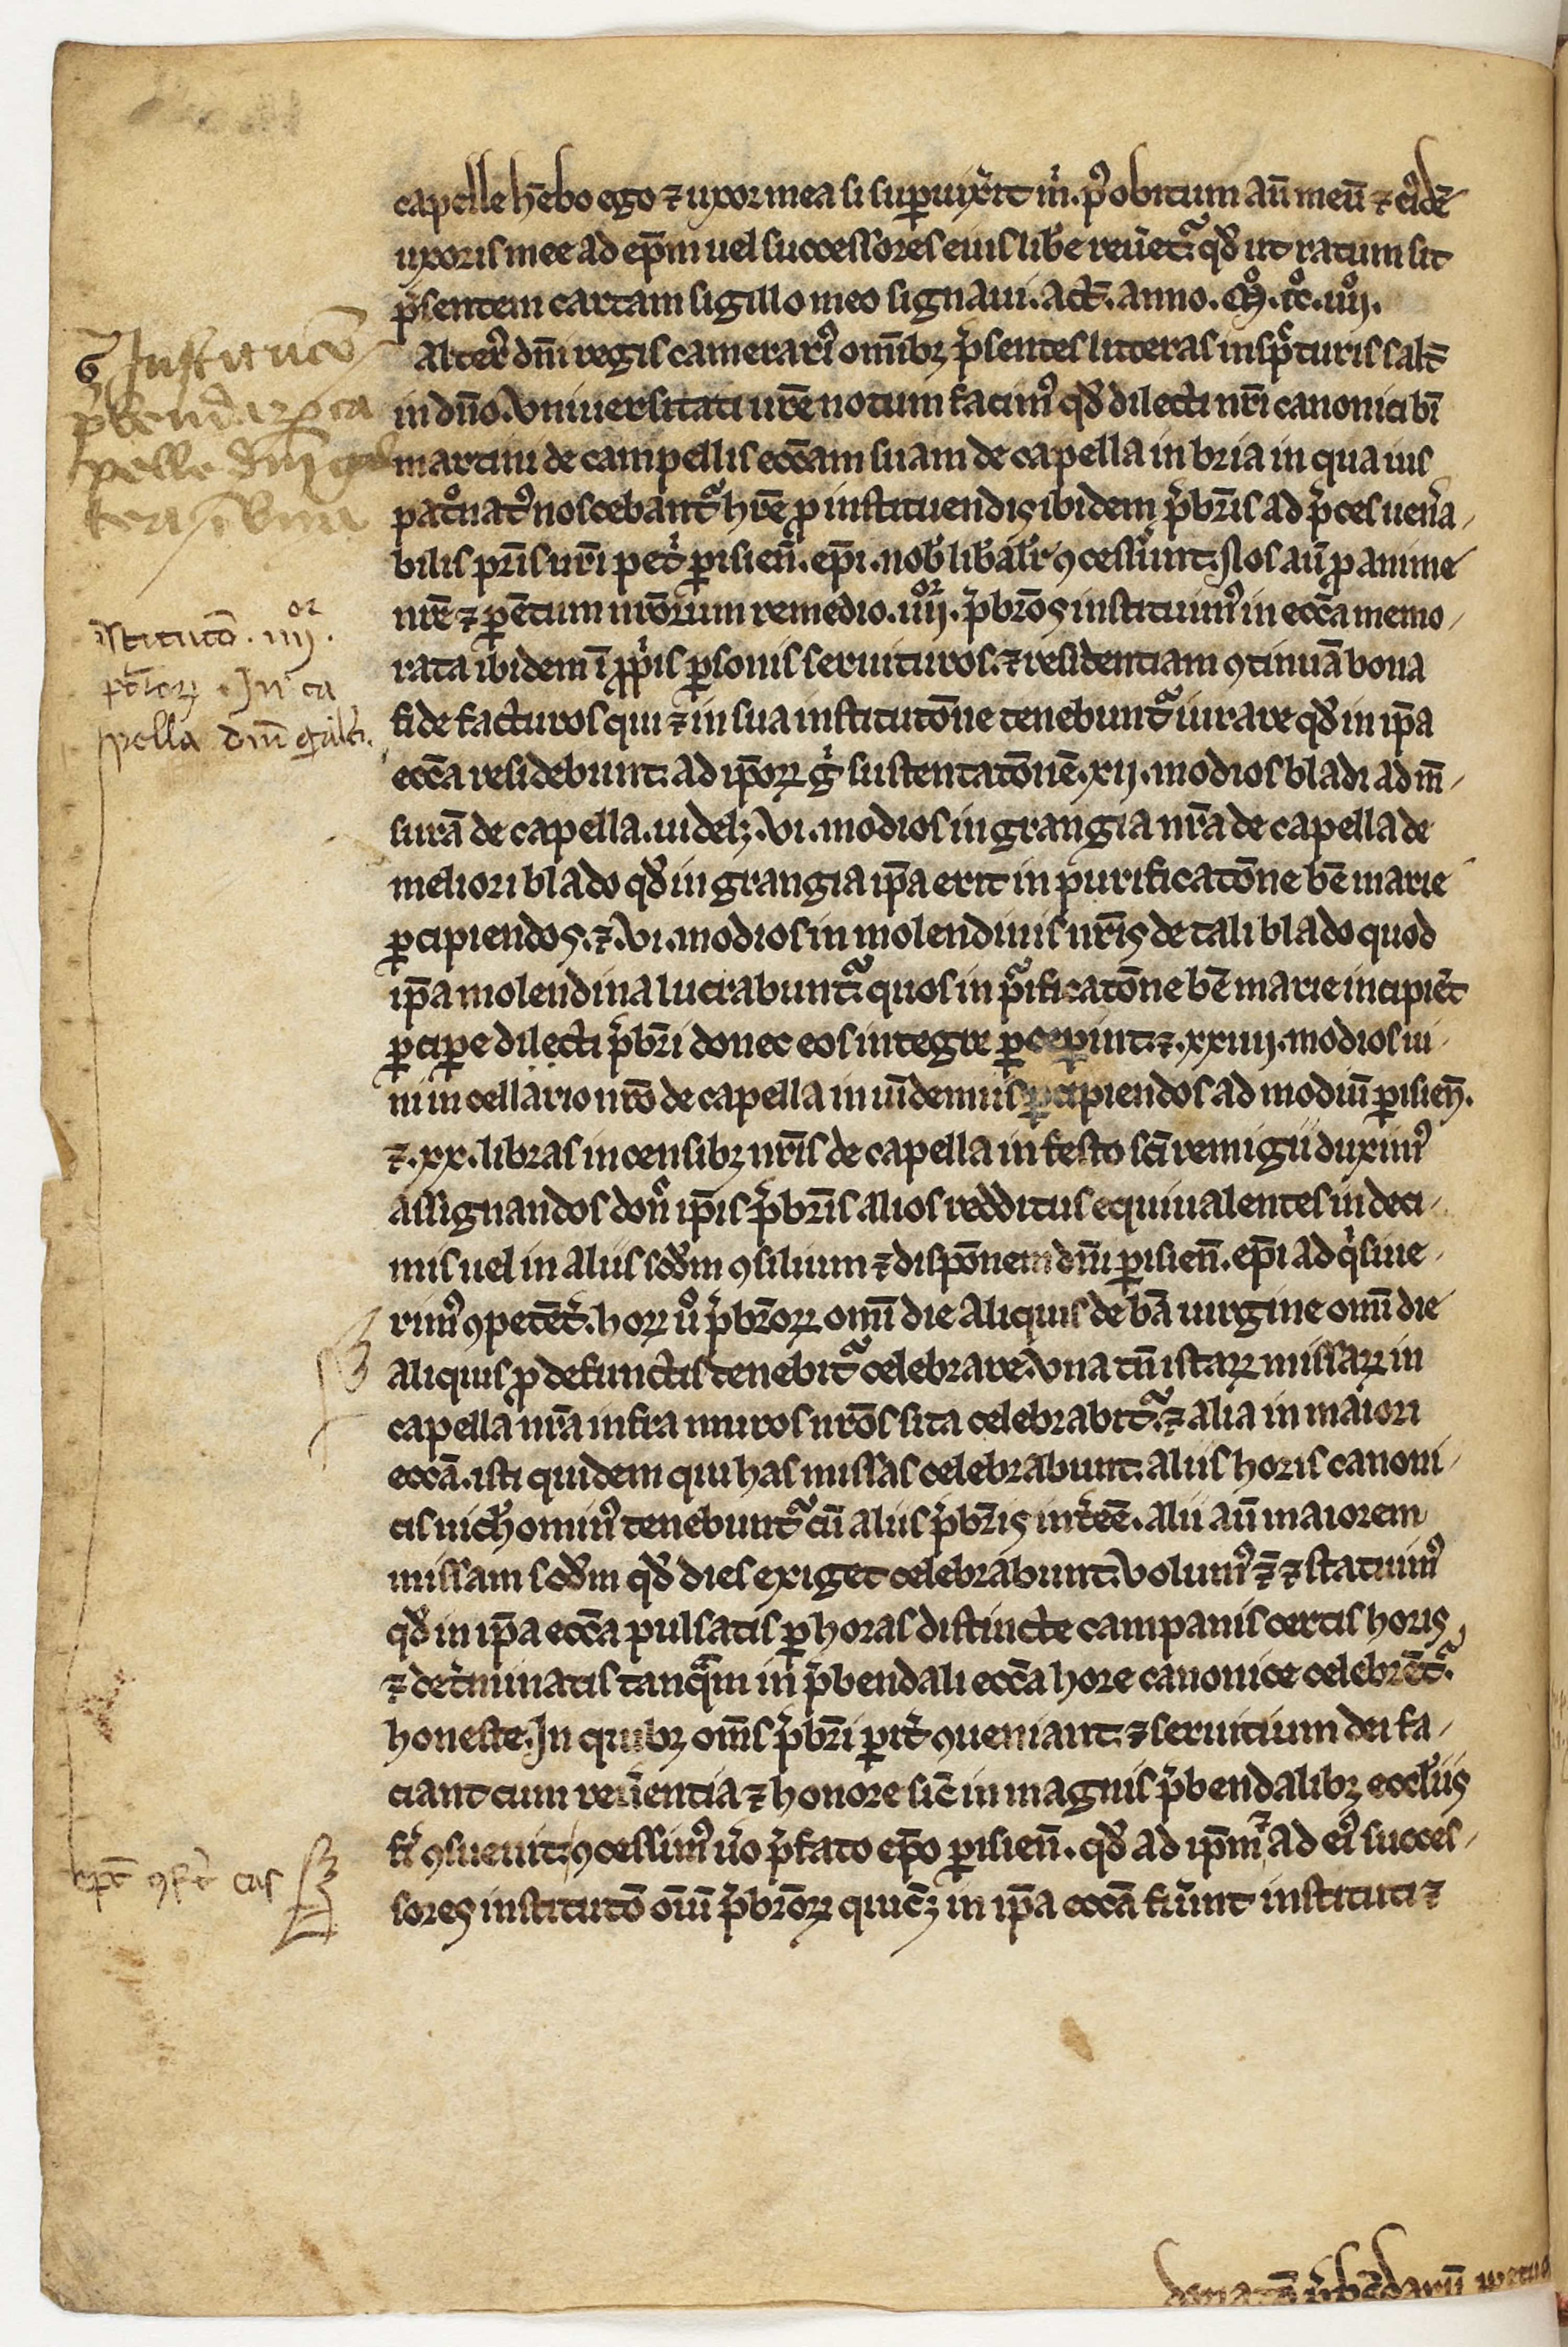 capelle hēbo ego ⁊ uxor mea si supuix̓it m̓. pꝰ obitum aū meū ⁊ ei̓dē
uxoris mee ad ep̄m uel successores eius lib̓e reuētᷣ. qd̓ ut ratum sit
p̓sentem cartam sigillo meo signaui. act̄. anno. M̊. cc̊. iiii̊.
alterꝰ dn̄i regis camerariꝰ om̄ibꝫ p̓sentes litteras inspᷓcturis salt̄
in dn̄o. Vniuersitati ur̄e notum facimꝰ qd̓ dilecti nr̄i canonici bī
martini de campellis ecc̄am suam de capella in bria in qua ius
pat̊natꝰ noscebantᷣ hr̄e ꝓ instituendis ibidem p̓br̄is ad p̓ces uen̓a
bilis pr̄is nr̄i pet̓ ꝑisien̄. ep̄i. nob̓ lib̓alr̄ ꝯcess̓unt. Nos aū ꝓ anime
nr̄e ⁊ ꝑentum nr̄orum remedio. iiii͛ᵒʳ. p̓br̄os instituimꝰ in ecc̄a memo
rata ibidem ī ꝓp̓is ꝑsonis seruituros. ⁊ residentiam ꝯtinuā bona
fide facturos qui ⁊ in sua institutōne tenebuntᷣ iurare qd̓ in ip̄a
ecc̄a residebunt. ad ip̄oꝝ g̓ sustentatōnē. xii. modios bladi ad m̄
surā de capella. uidelꝫ. vi. modios in grangia nr̄a de capella de
meliori blado qd̓ in grangia ip̄a erit in purificatōne bē marie
ꝑcipiendos. ⁊. vi. modios in molendinis nr̄is de tali blado quod
ip̄a molendina lucrabuntᷣ. quos in pᷣificatōne bē marie incipiēt
ꝑcipe dilecti p̓br̄i donec eos integre ꝑcepint. ⁊. xxiiii. modios ui
ni in cellario nr̄o de capella in uīdemiis ꝑcipiendos ad modiū ꝑisien̄.
⁊. xx. libras in censibꝫ nr̄is de capella in festo sc̄i remigii duximꝰ
assignandos don̓ ip̄is p̓br̄is alios redditus equiualentes in deci
mis uel in aliis scd̓m ꝯsilium ⁊ dispōnem dn̄i ꝑisien̄. ep̄i adq̓siue
rimꝰ ꝯpetēt̓. hoꝝ ů p̓br̄oꝝ om̄i die aliquis de bā uirgine om̄i die
aliquis ꝓ defunctis tenebitᷣ celebrare. Vna tn̄ istaꝝ missaꝝ in
capella nr̄a infra muros nr̄os sita celebrabitᷣ. ⁊ alia in maiori
ecc̄a. isti quidem qui has missas celebrabunt. aliis horis canoni
cis nich̓ominꝰ tenebuntᷣ cū aliis p̓br̄is int̓eē. alii aū maiorem
missam scd̓m qd̓ dies exiget celebrabunt. Volumꝰ ⁊̄ ⁊ statuimꝰ
qd̓ in ip̄a ecc̄a pulsatis ꝑ horas distincte campanis certis horis
⁊ det̓minatis tanqᷓm in p̓bendali ecc̄a hore canonice celebrētᷣ
honeste. In quibꝫ om̄s p̓br̄i ꝑit̓ ꝯueniant. ⁊ seruitium dei fa
ciant cum reu̓entia ⁊ honore sic̄ in magnis p̓bendalibꝫ eccl̓iis
fi̓ ꝯsueuit. ꝯcessimꝰ u̓o p̓fato ep̄o ꝑisien̄. qd̓ ad ip̄m ⁊ ad eiꝰ succes
sores institutō om̄iū p̓br̄oꝝ quicūqꝫ in ip̄a ecc̄a fu̓int instituti ⁊
Institucō
p̓bendaꝝ ca
pelle dn̄i gal
teri
īstitutō. iiii ᵒʳ.
pb̄roꝝ. In ca
pella dn̄i galt̓i.